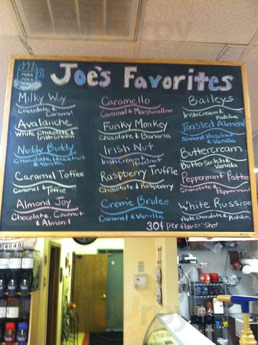 Joe's Favorites
Milky Way
Chocolate & Caramel
Avalanche
White Chocolate &
Nuddy Buddy
Chocolate, Hazelnut
Caramel Toffee
Caramel & Toffee
Almond Joy
Chocolate, Coconut
& Almond
Caramello
Caramel & Marshmallow
Funky Monkey
Chocolate & Banana
Irish Nut
Irish Cream
Raspberry Truffle
Chocolate & Raspberry
Creme Brulee
Caramel & Vanilla
Baileys
Irish Cream &
Toasted Almond
Almond, Hazelnut
& Vanilla
Buttercream
Butter Scotch &
Vanilla
Peppermint Pattie
Chocolate &
Peppermint
White Russian
30¢ per flavor shot